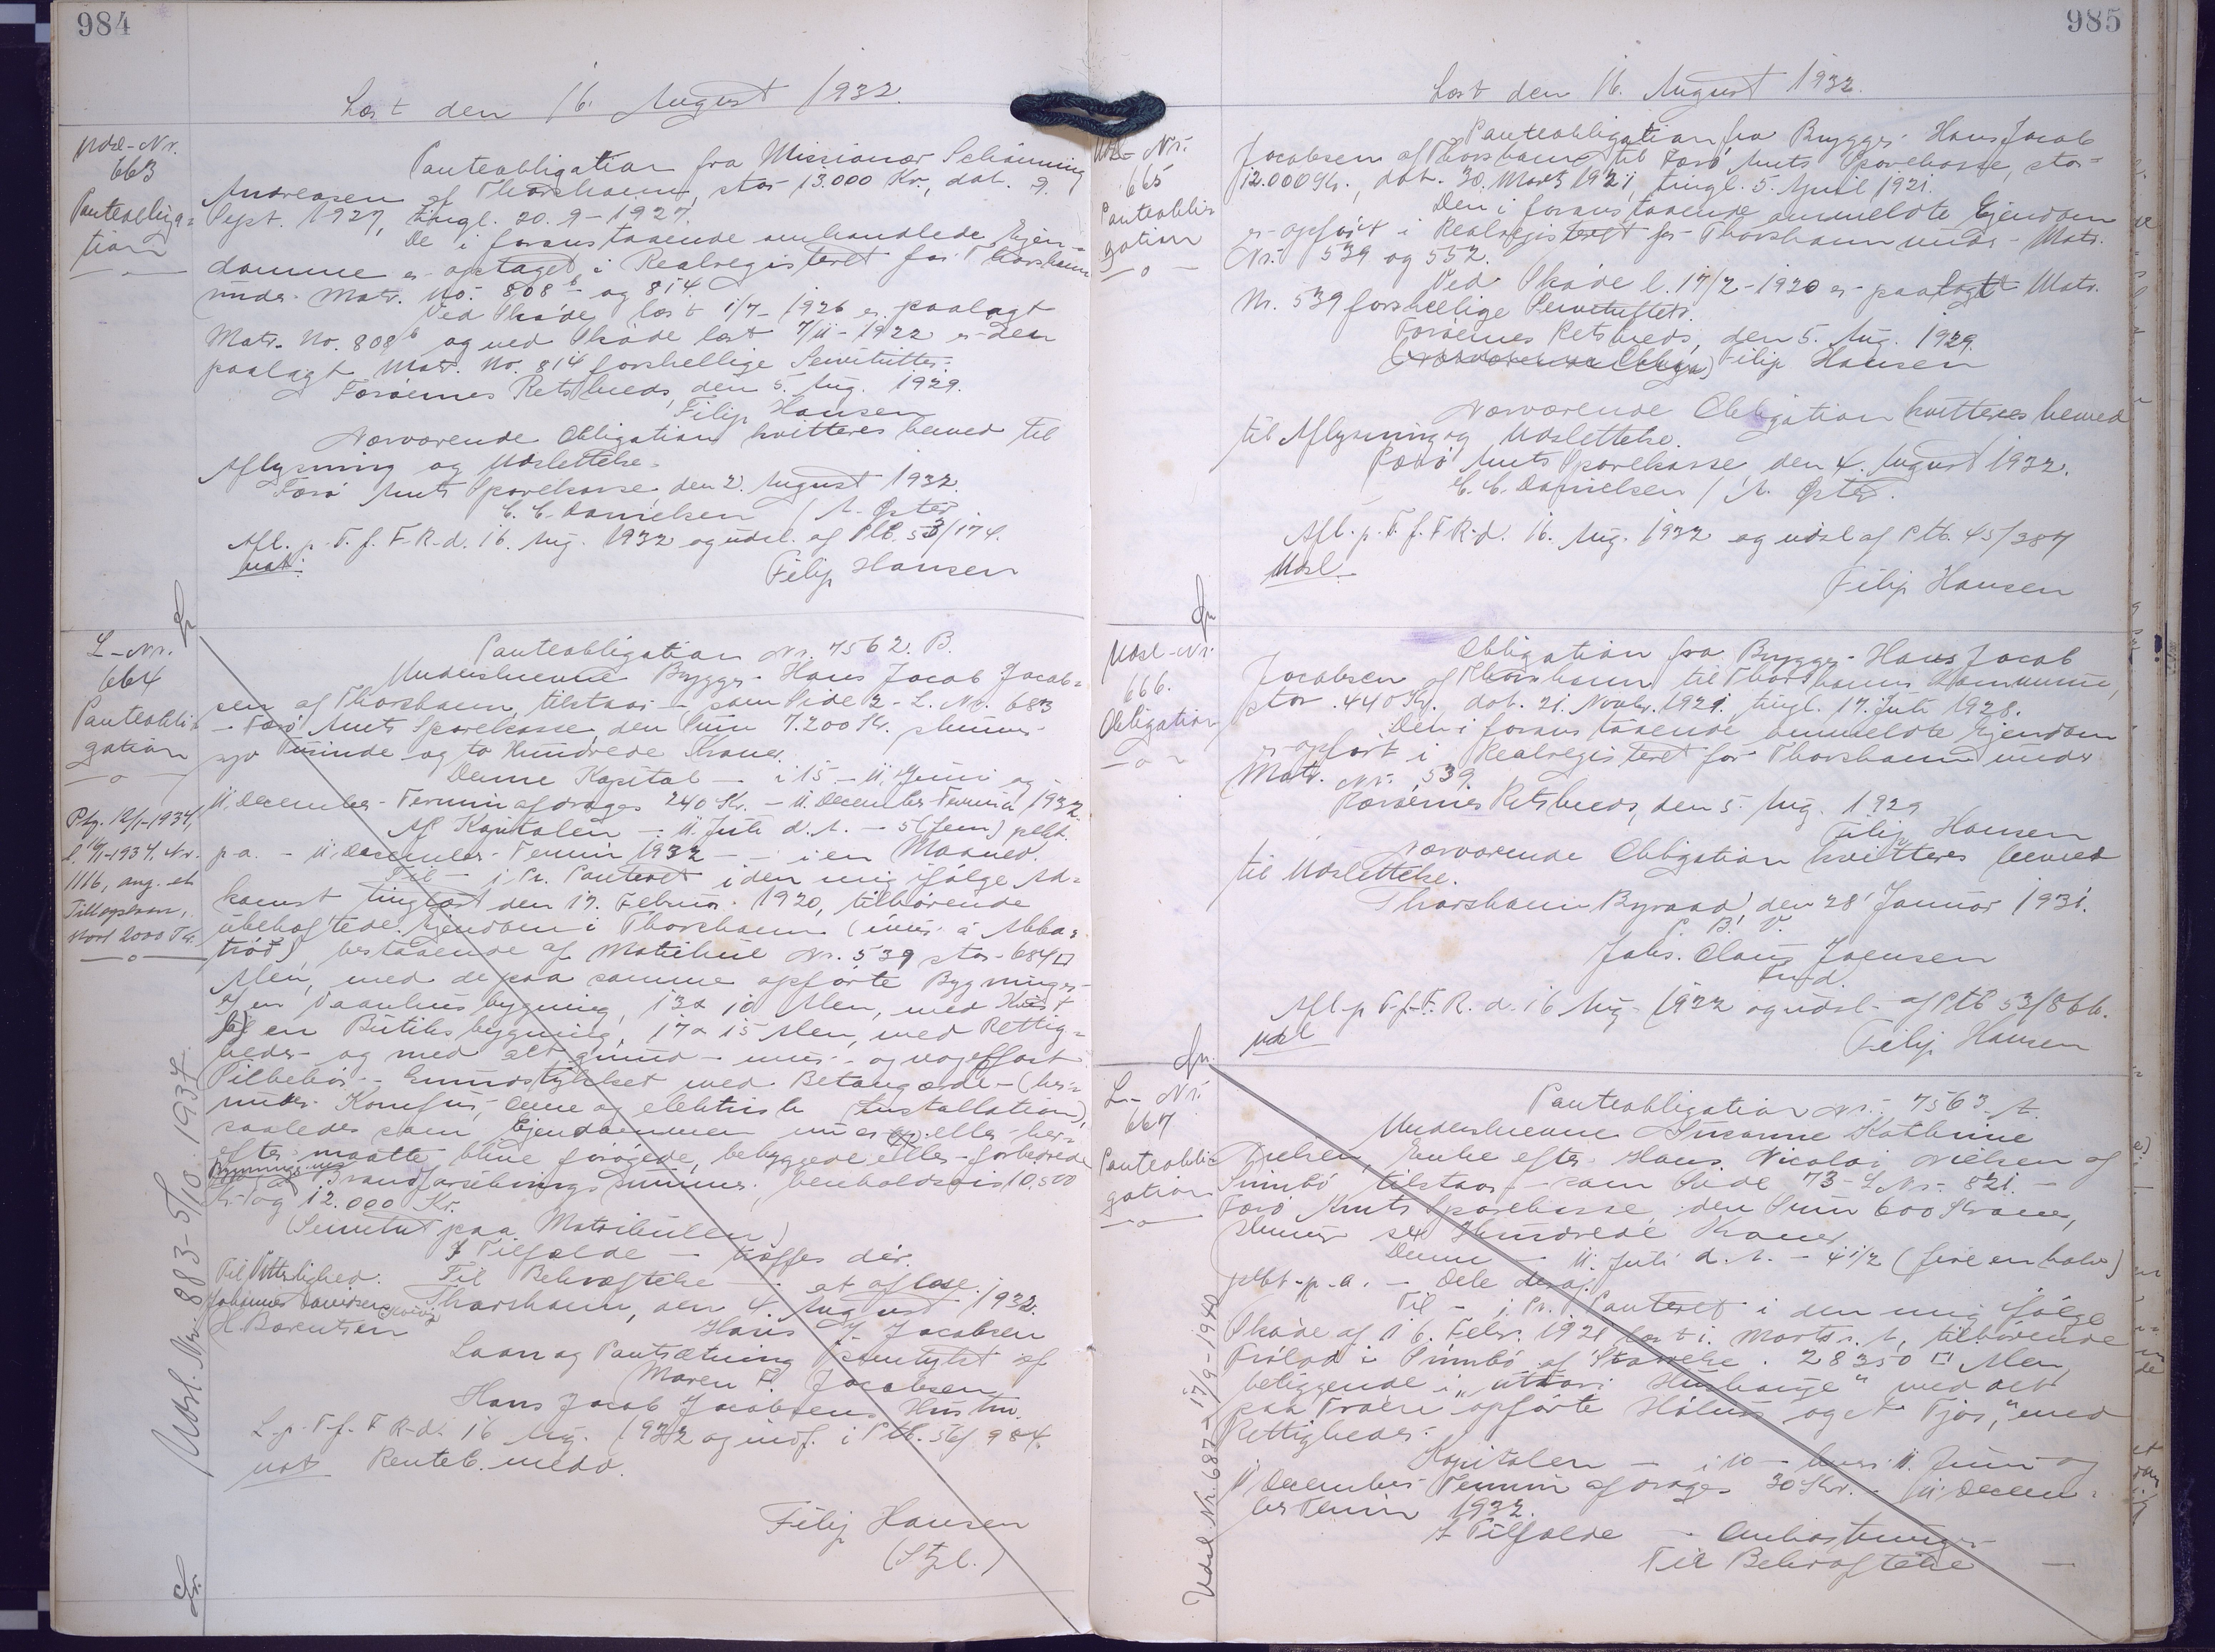 984
Læst den 16. August 1932.
Udsl-Nr.
663
Panteobliga=
tion
Panteobligation fra Missionær Schønning
Andreasen af Thorshavn, stor 13.000 Kr., dat. 9.
Sept. 1927, tingl. 20. 9-1927.
De i foranstaaende omhandlede Ejen-
domme er optaget i Realregisteret for Thorshavn
under Matr. No. 808 b og 814.
Ved Skøde læst 1/7-1926 er paalagt
Matr. No. 808 b og ved Skøde læst 7/11-1922 er den
paalagt Matr. No. 814 forskellige Servitutter.
Færøernes Retskreds, den 5. Aug. 1929.
Filip Hansen
Nærværende Obligation kvitteres herved til
Aflysning og Udslettelse.
Færø Amts Sparekasse, den 2. August 1932.
C. C. Danielsen / A. Øster
Afl. p. T. f. F. R. d. 16. Aug. 1932 og udsl. af Ptb. 53/174.
Filip Hansen
L-Nr.
664
Panteobli-
gation
Ptg. 12/1-1934,
l. 16/1-1934. Nr.
1116, ang. et
Tillægslaan,
stort 2000 Kr.
Udsl. Nr. 883 - 5/10 1934.
Panteobligation Nr. 7562. B.
Undertegnede Brygger Hans Jacob Jacob=
sen af Thorshavn, tilstaar - som Side 2 - L. Nr. 683
- Færø Amts Sparekasse, den Sum 7.200 Kr. skriver
syv Tusinde og to Hundrede Kroner.
Denne Kapital - i 15 - 11. Juni og
11. December-Termin afdrages 240 Kr. - 11. December Termin 1932.
Af Kapitalen - 11. Juli d. A. - 5 (fem) pCt.
p.a. - 11. December-Termin 1932 - i en Maaned.
Til - j Pr. Panteret i den mig ifølge Ad=
komst tinglæst den 17. Februar 1920, tilhørende
ubehæftede Ejendom i Thorshavn (inni á Abba=
trøð), bestaaende af Matrikul Nr. 539 stor 684 □
Alen, med de paa samme opførte Bygninger
a) en Vaanhusbygning, 13 x 10 Alen, med Kvist
b) en Butiksbygning, 17 x 15 Alen, med Rettig=
heder og med alt grund- mur- og nagelfast
Tilbehør - Grundstykket med Betongærde - (her=
under Komfur, Ovne og elektrisk Installation),
saaledes som Ejendommen nu er eller her=
efter maatte blive forøgede, bebyggede eller forbedrede
Brandforsikringssummer henholdsvis 10,500
Kr. og 12.000 Kr.
(Servitut paa Matrikulen)
I Tilfælde - træffes dér.
Til Bekræftelse - et af læse.
Thorshavn, den 4. August 1932.
Hans J. Jacobsen
Til Vitterlighed.
Johannes Davidsen
H. Berentsen
Laan og Pantsætning samtykt af
Maren F. Jacobsen
Hans Jacob Jacobsens Hustru.
L. p. T. f. F. R. d. 16 Aug. 1932 og indf. i Ptb. 56/984.
Renteb. medd.
Filip Hansen
(Stpl.)
985
Læst den 16. August 1932.
Udsl-Nr.
665
Panteobli-
gation
Panteobligation fra Brygger Hans Jacob
Jacobsen af Thorshavn til Færø Amts Sparekasse, stor
12.000 Kr., dat. 30. Marts 1921, tingl. 5. April 1921.
Den i foranstaaende ommeldte Ejendom
er opført i Realregisteret for Thorshavn under Matr.
Nr. 539 og 552.
Ved Skøde l. 17/2-1920 er paalagt Matr.
Nr. 539 forskellige Servitutter.
Færøernes Retskreds, den 5. Aug. 1929.
Filip Hansen
Nærværende Obligation kvitteres herved
til Aflysning og Udslettelse.
Færø Amts Sparekasse, den 4. August 1932.
C. C. Danielsen / A. Øster.
Afl. p. T. f. F R. d. 16. Aug. 1932 og udsl af Ptb. 45/387
Udsl.
Filip Hansen
Udsl-Nr.
666.
Obligation
Obligation fra Brygger Hans Jacob
Jacobsen af Thorshavn til Thorshavns Kommune,
stor 440 Kr. dat. 21. Novbr. 1921. tingl. 17. Juli 1928.
Den i foranstaaende ommeldte Ejendom
er opført i Realregisteret for Thorshavn under
Matr. Nr. 539.
Færøernes Retskreds, den 5. Aug. 1929
Filip Hansen
Nærværende Obligation kvitteres herved
til Udslettelse.
Thorshavn Byraad, den 28' Januar 1931.
P. B. V.
Johs. Claus Joensen
fmd.
Afl. p T. f. F. R. d. 16 Aug. 1932 og udsl. af Ptb 53/866.
Udsl
Filip Hansen
L-Nr.
667
Panteobli-
gation
Udsl. Nr. 687 - 17/9-1940
Panteobligation Nr. 7563. A.
Undertegnede Susanne Kathrine
Nielsen, Enke efter Hans Nicolai Nielsen af
Sumbø tilstaar - som Side 73 - L Nr. 821. -
Færø Amts Sparekasse, den Sum 600 Kroner,
skriver seks Hundrede Kroner
Denne - 11. Juli d. A. - 4 1/2 (fire en halv)
pCt. p. a. - Dele deraf.
Til - j. Pr. Panteret i den mig ifølge
Skøde af 16. Febr. 1921 læst i. Marts s. A. tilhørende
Trølod i Sumbø af Størrelse 28350 □ Alen,
beliggende i „uttari Húshagje“ med det
paa Trøen opførte Høhus og et Fjós, med
Rettigheder.
Kapitalen - i 10 - hver 11. Juni og
11 December Termin afdrages 30 Kr. - 11. Decem=
ber Termin 1932.
I Tilfælde - Omkostninger
Til Bekræftelse -